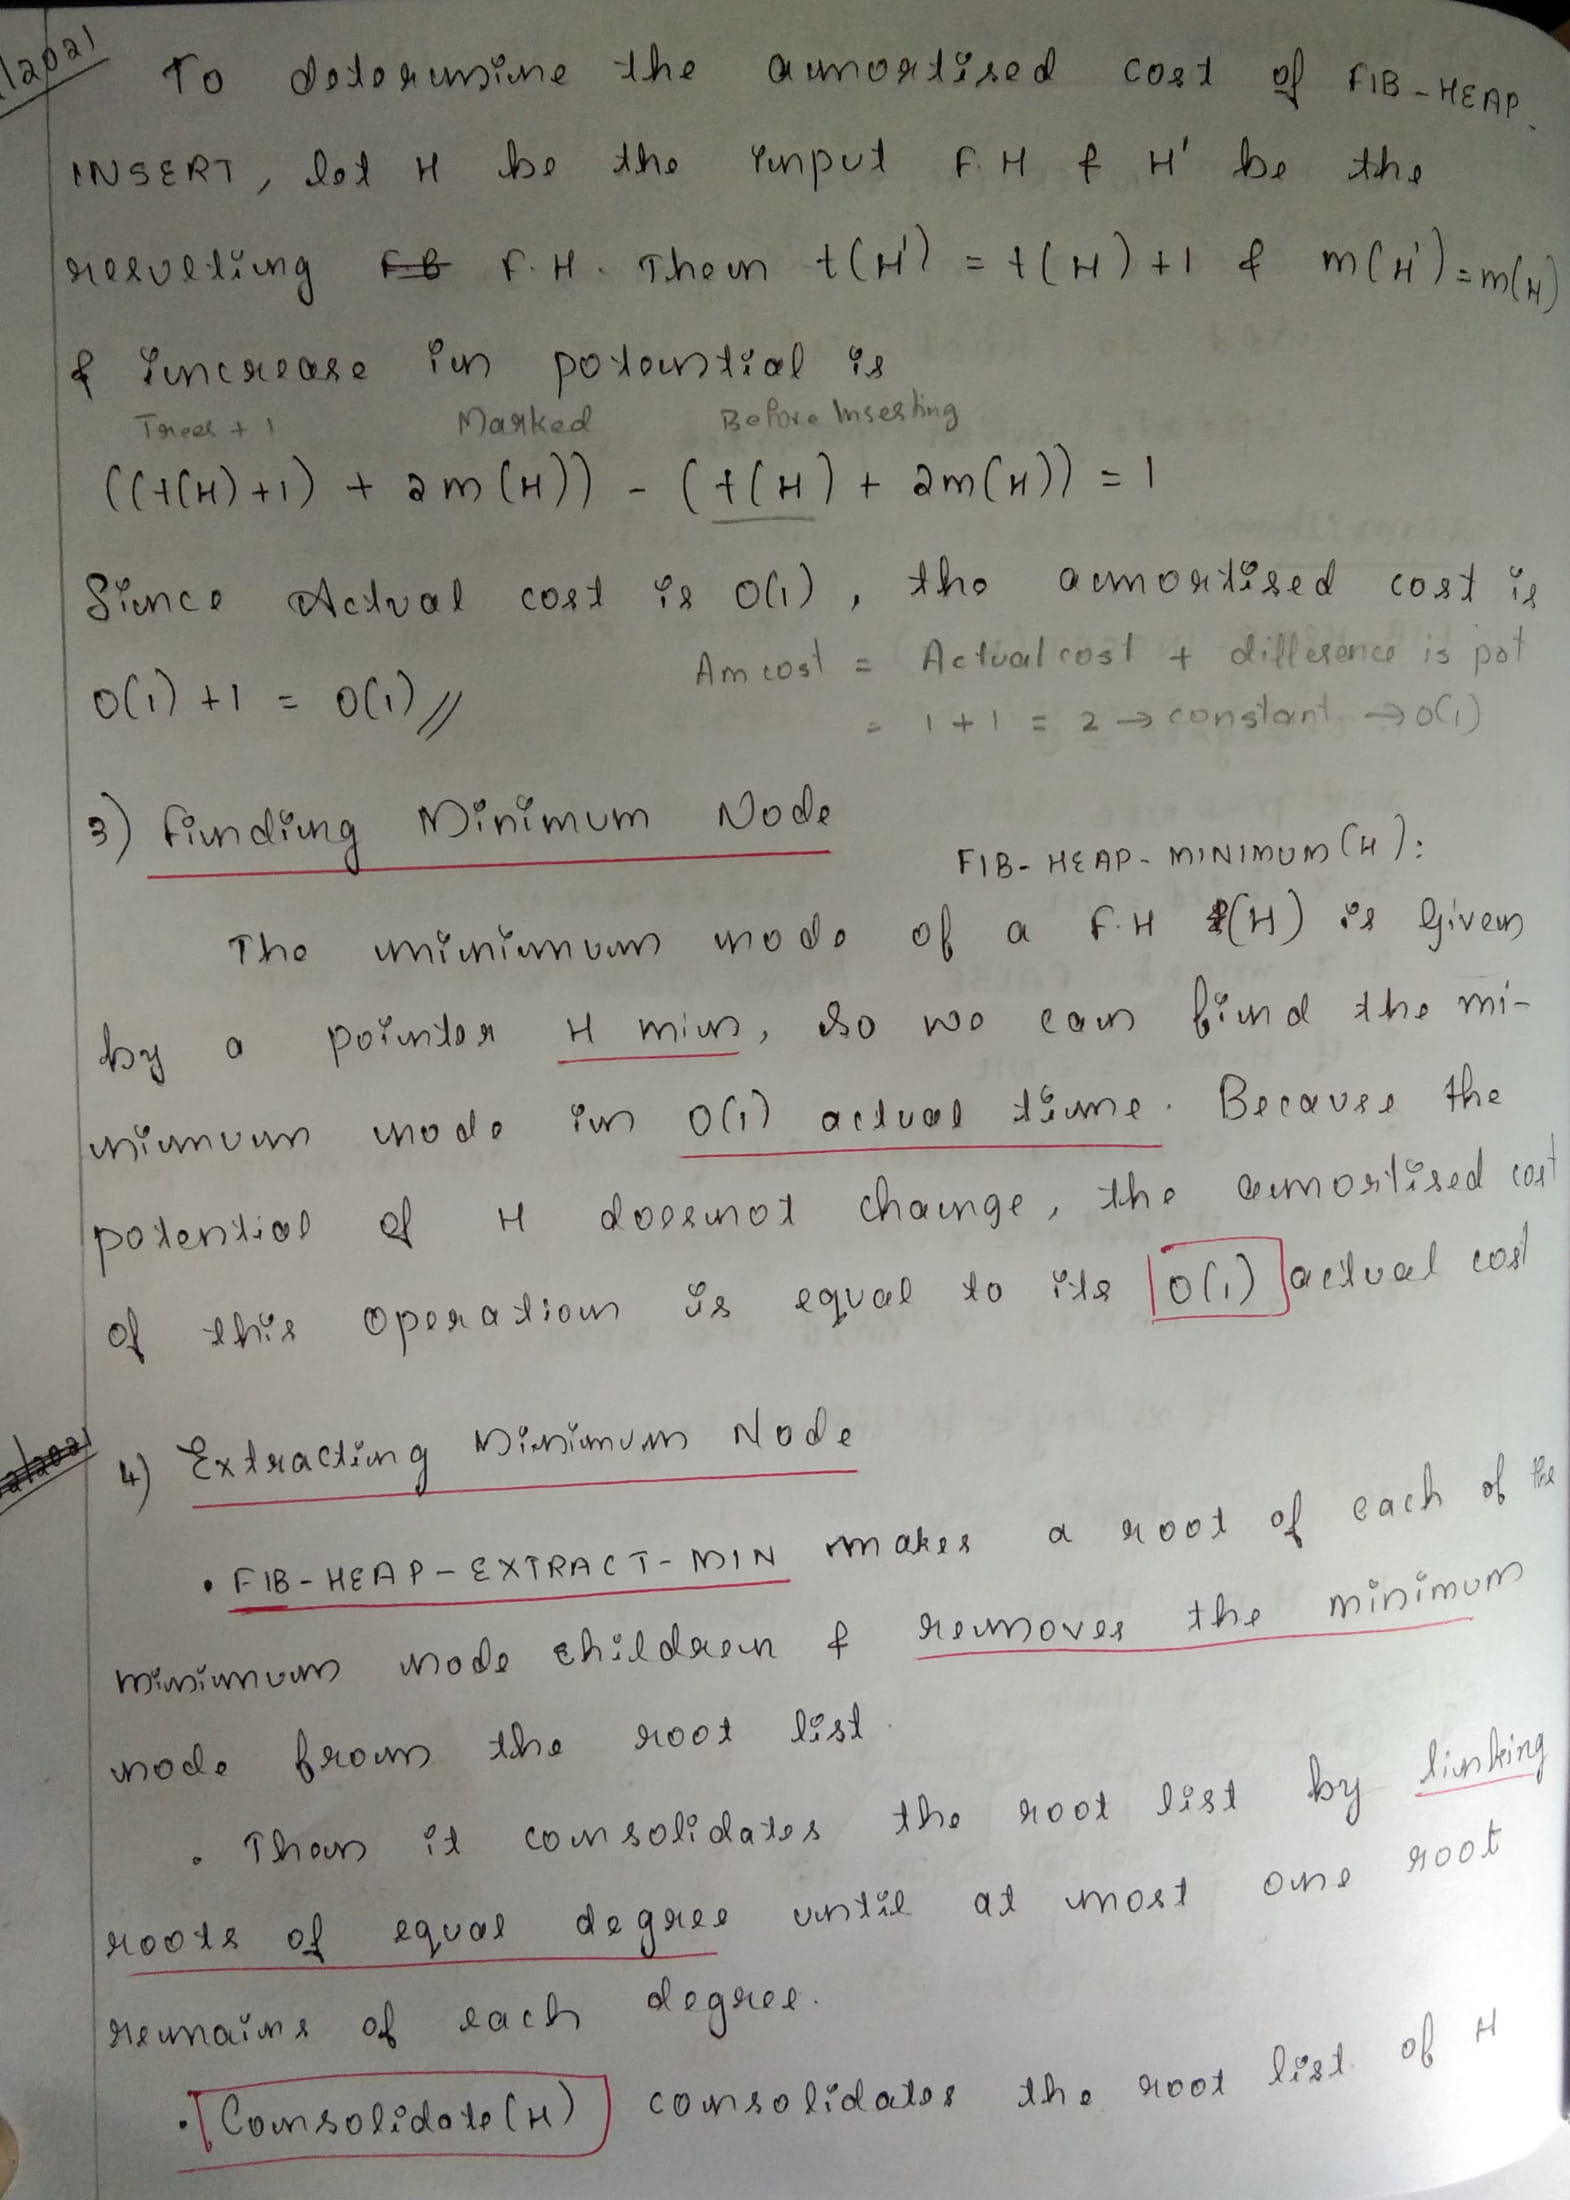 /2021
To determine the amortised cost of FIB-HEAP-
INSERT, let H be the input F.H & H' be the
resulting F.H. Then t(H') = t(H) +1 & m(H') = m(H)
& increase in potential is
Trees + 1 Marked Before Inserting
((t(H)+1) + 2m(H)) - (t(H) + 2m(H)) = 1
Since Actual cost is O(1), the amortised cost is
O(1) +1 = O(1)//
Am cost = Actual cost + difference is pot
= 1+1 = 2 → constant → O(1)
3) Finding Minimum Node
FIB-HEAP-MINIMUM(H):
The minimum node of a F.H (H) is given
by a pointer H min, so we can find the mi-
nimum node in O(1) actual time. Because the
potential of H doesnot change, the amortised cost
of this operation is equal to its O(1) actual cost
4) Extracting Minimum Node
• FIB-HEAP-EXTRACT-MIN makes a root of each of the
minimum node children & removes the minimum
node from the root list.
• Then it consolidates the root list by linking
roots of equal degree until at most one root
remains of each degree.
• Consolidate(H) consolidates the root list of H